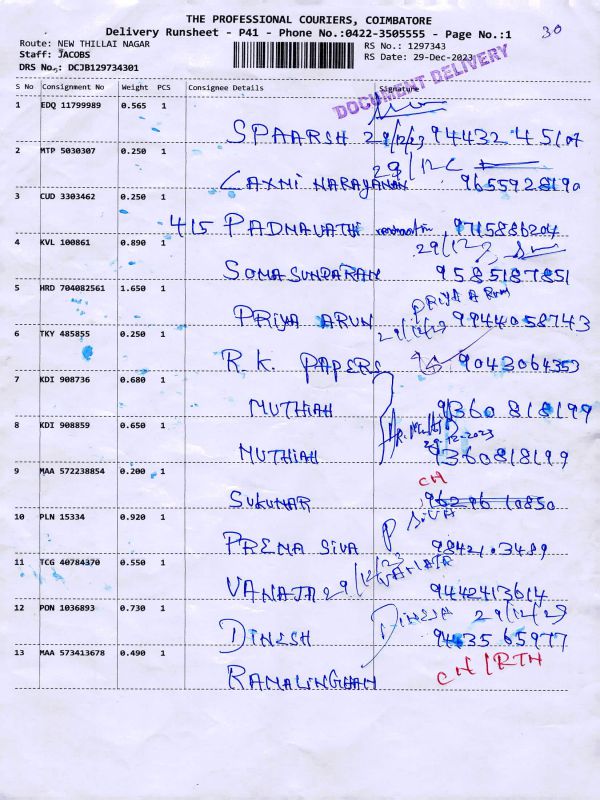 THE PROFESSIONAL COURIERS, COIMBATORE
30
Delivery Runsheet - P41 - Phone No.:0422-3505555 - Page No.:1
Route: NEW THILLAI NAGAR
RS No.: 1297343
Staff: JACOBS
RS Date: 29-Dec-2023
DRS No.: DCJB129734301
DOCUMENT DELIVERY
S No Consignment No Weight PCS Consignee Details Signature
1 EDQ 11799989 0.565 1
SPAARSH 29/12/23 94432 45107
2 MTP 5030307 0.250 1
29/12
LAXMI NARAYANAN 9655928190
3 CUD 3303462 0.250 1
415 PADMAVATHI 9715886204
4 KVL 100861 0.890 1
29/12
SOMASUNDARAN 9585187851
5 HRD 704082561 1.650 1
PRIYA ARUN
PRIYA ARUN 9944058743
6 TKY 485855 0.250 1
29/12/23
R.K. PAPERS 9043064353
7 KDI 908736 0.680 1
MUTHIAH 9360818199
8 KDI 908859 0.650 1
29-12-2023
MUTHIAH 9360818199
9 MAA 572238854 0.200 1
CH
SUKUMAR 96296 10850
10 PLN 15334 0.920 1
P SIVA
PREMA SIVA 98421.3489
11 TCG 40784370 0.550 1
VANAJA 29/12/23 VANAJA
9442413614
12 PON 1036893 0.730 1
DINESH 29/12/23
DINESH 94635 65977
13 MAA 573413678 0.490 1
CH/RTN
RAMALINGHAM